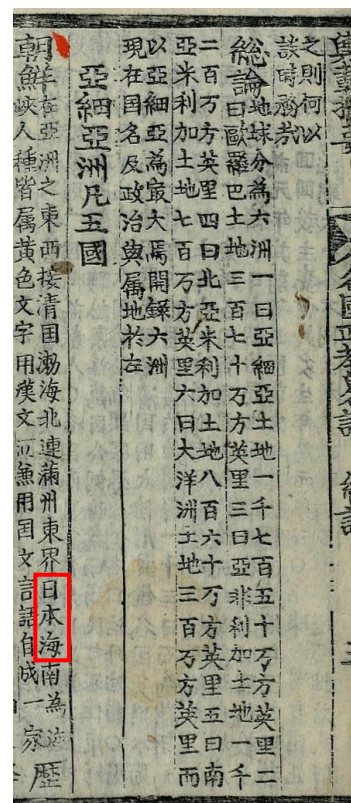 之則何以
談時務若
総論地球分為六洲一曰亞細亞土地一千七百五十万方英里二
曰歐羅巴土地三百七十万方英里三曰亞非利加土地一千
二百万方英里四曰北亞米利加土地八百六十万方英里五曰南
亞米利加土地七百万方英里六曰大洋洲土地三百万方英里而
以亞細亞為最大焉開錄六洲
現在国名及政治與属地於左
亞細亞洲凡五國
在亞洲之東西接清国渤海北連滿州東界日本海南為海歷
朝鮮峽人種皆属黃色文字用漢文而兼用国文言語自成一家